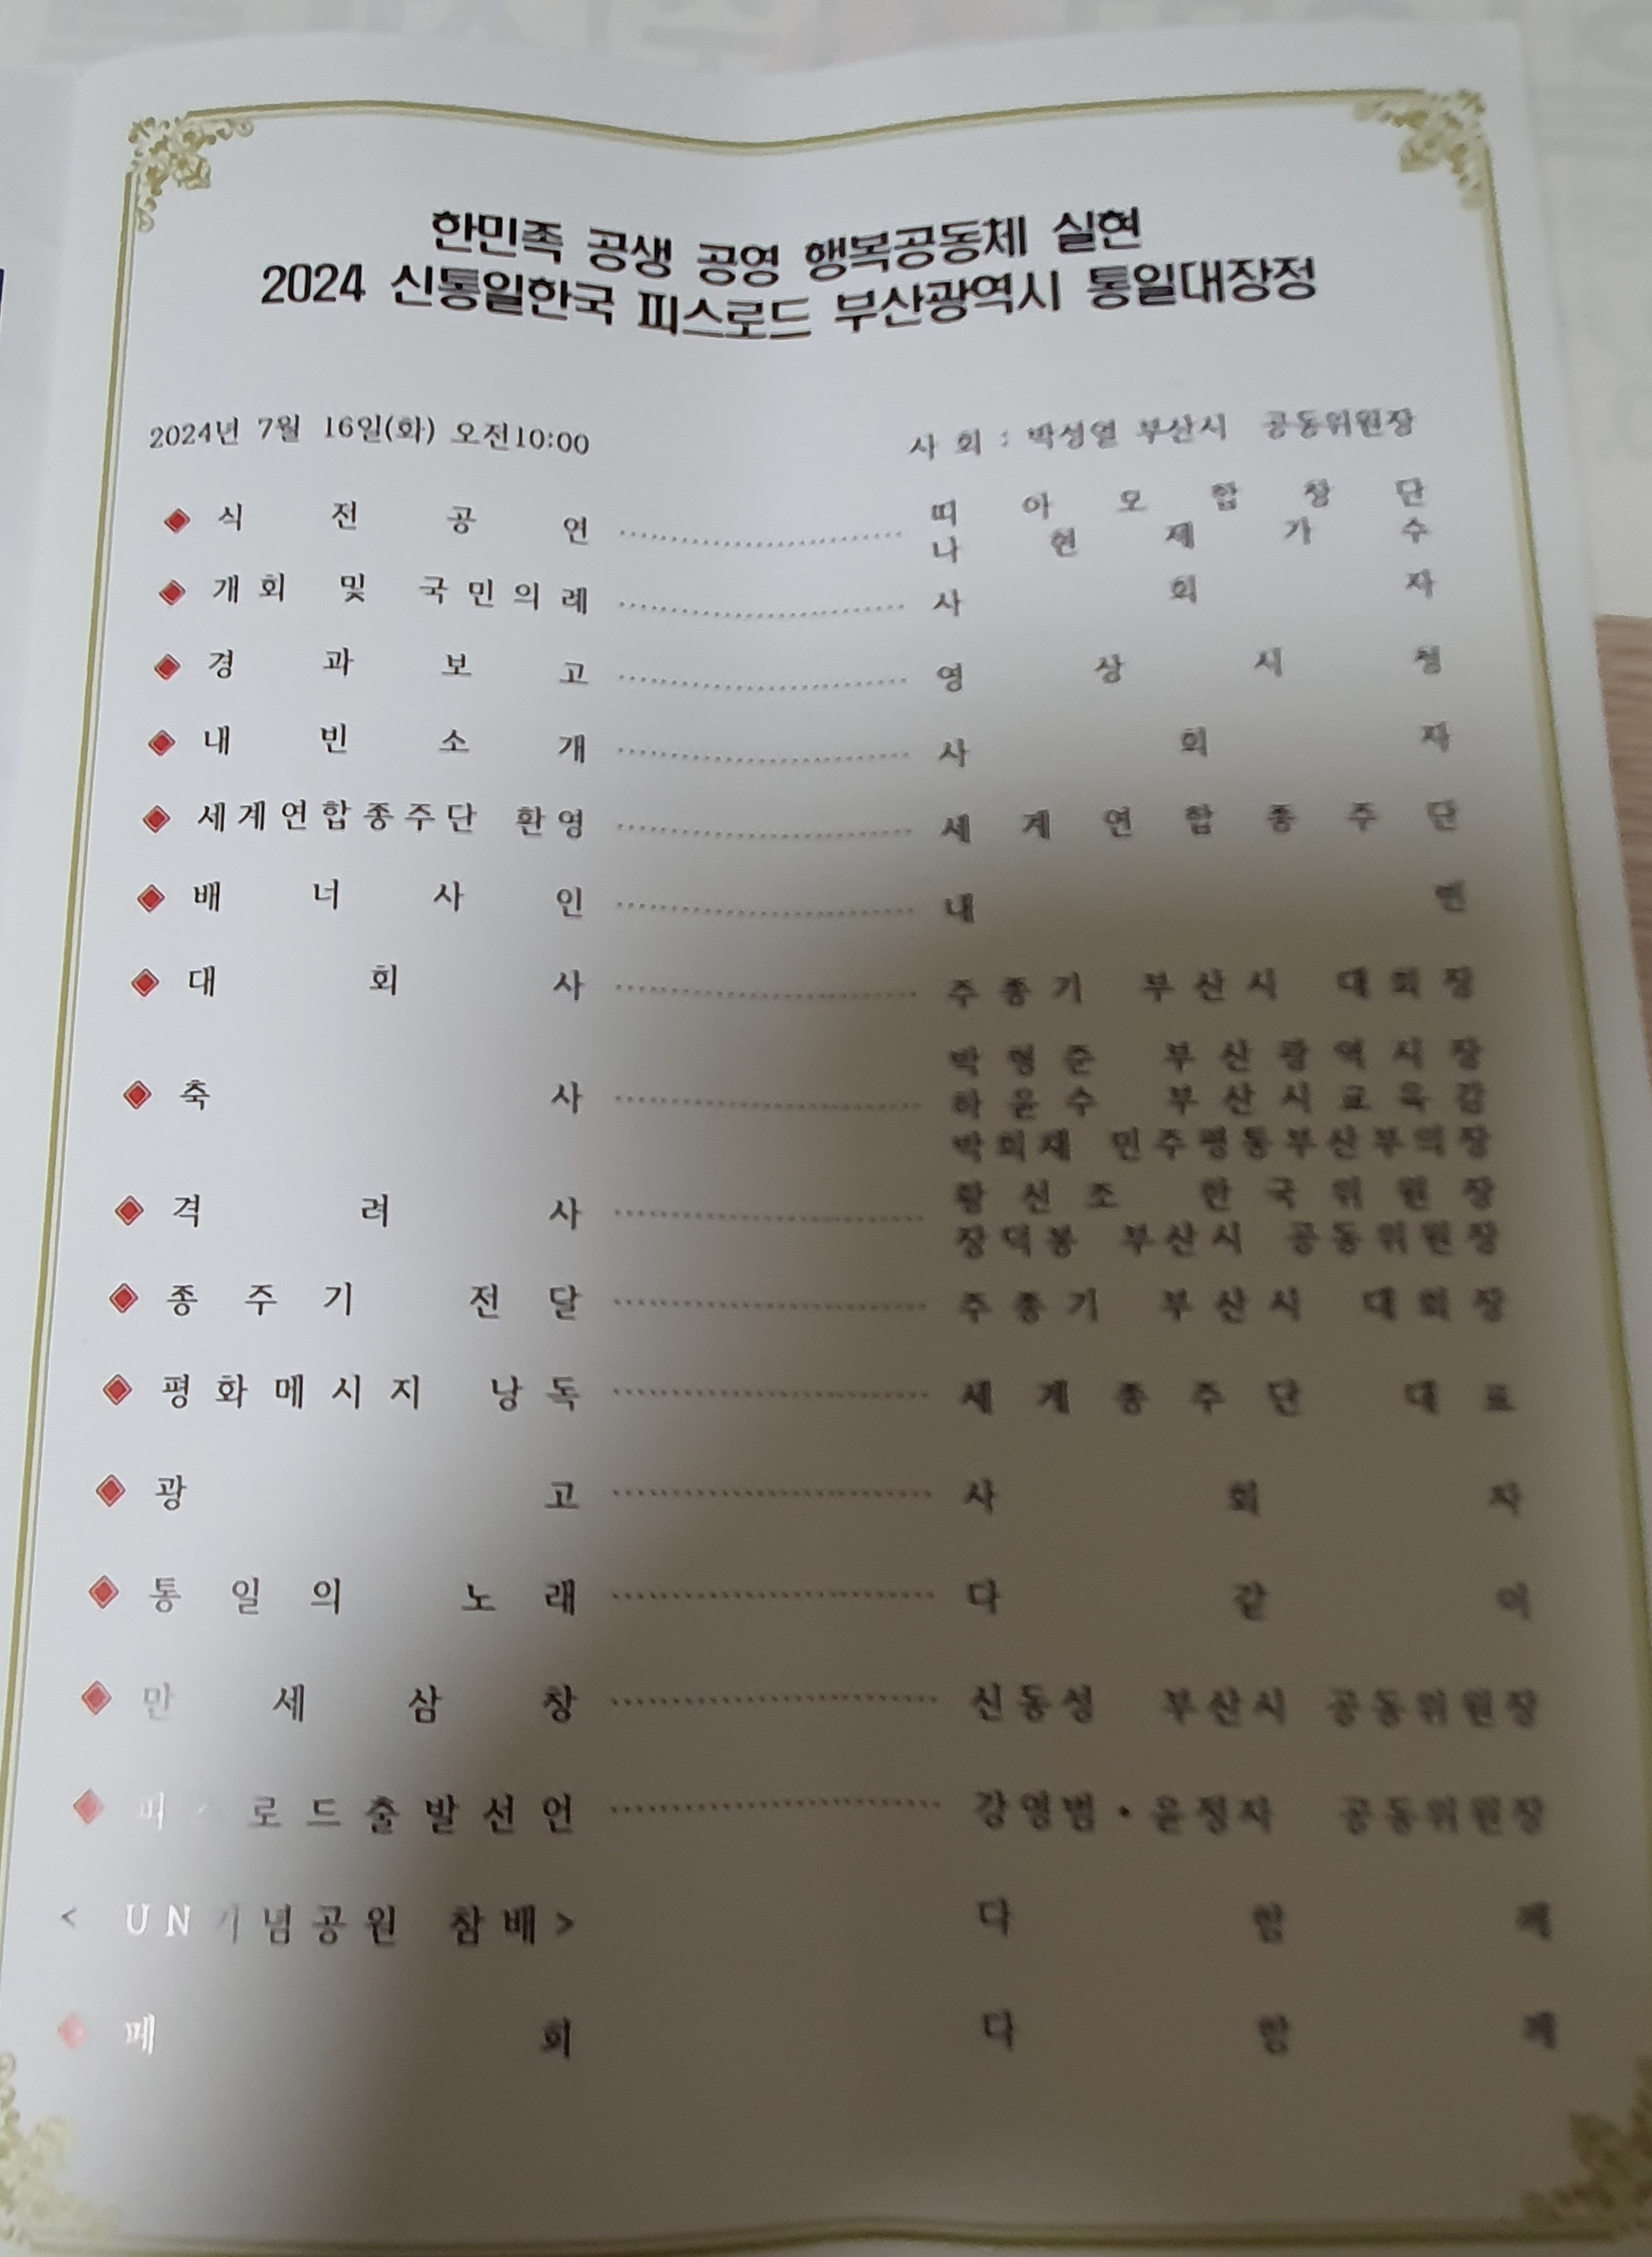 한민족 공생 공영 행복공동체 실현
2024 신통일한국 피스로드 부산광역시 통일대장정
2024년 7월 16일(화) 오전10:00 사회 : 박성열 부산시 공동위원장
식전공연 ························ 띠아모합창단
나현재가수
개회 및 국민의례 ························ 사회자
경과보고 ························ 영상시청
내빈소개 ························ 사회자
세계연합종주단 환영 ························ 세계연합종주단
배너사인 ························ 내빈
대회사 ························ 주종기 부산시 대회장
축사 ························ 박형준 부산광역시장
하윤수 부산시교육감
박희재 민주평통부산부의장
격려사 ························ 황선조 한국위원장
장덕봉 부산시 공동위원장
종주기 전달 ························ 주종기 부산시 대회장
평화메시지 낭독 ························ 세계종주단 대표
광고 ························ 사회자
통일의 노래 ························ 다같이
만세삼창 ························ 신동성 부산시 공동위원장
피스로드출발선언 ························ 강영범·윤정자 공동위원장
< UN기념공원 참배> 다함께
폐회 다함께